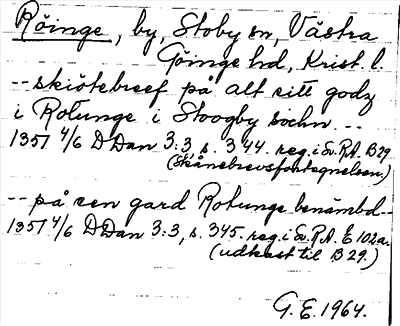 Röinge, by, Stoby sn, Västra
Göinge hd, Krist. l.
-- skiötebreef på alt sitt godz
i Rotunge i Stoogby sochn --
1351 4/6 DDan 3:3, s. 344 reg. i Sv. R.A. B 29
(Skånebrevsfortegnelsen)
-- på een gard Rotunge benämbd --
1351 4/6 DDan 3:3, s. 345 reg. i Sv. R.A. E 102a.
(udkast til B 29.)
G. E. 1964.